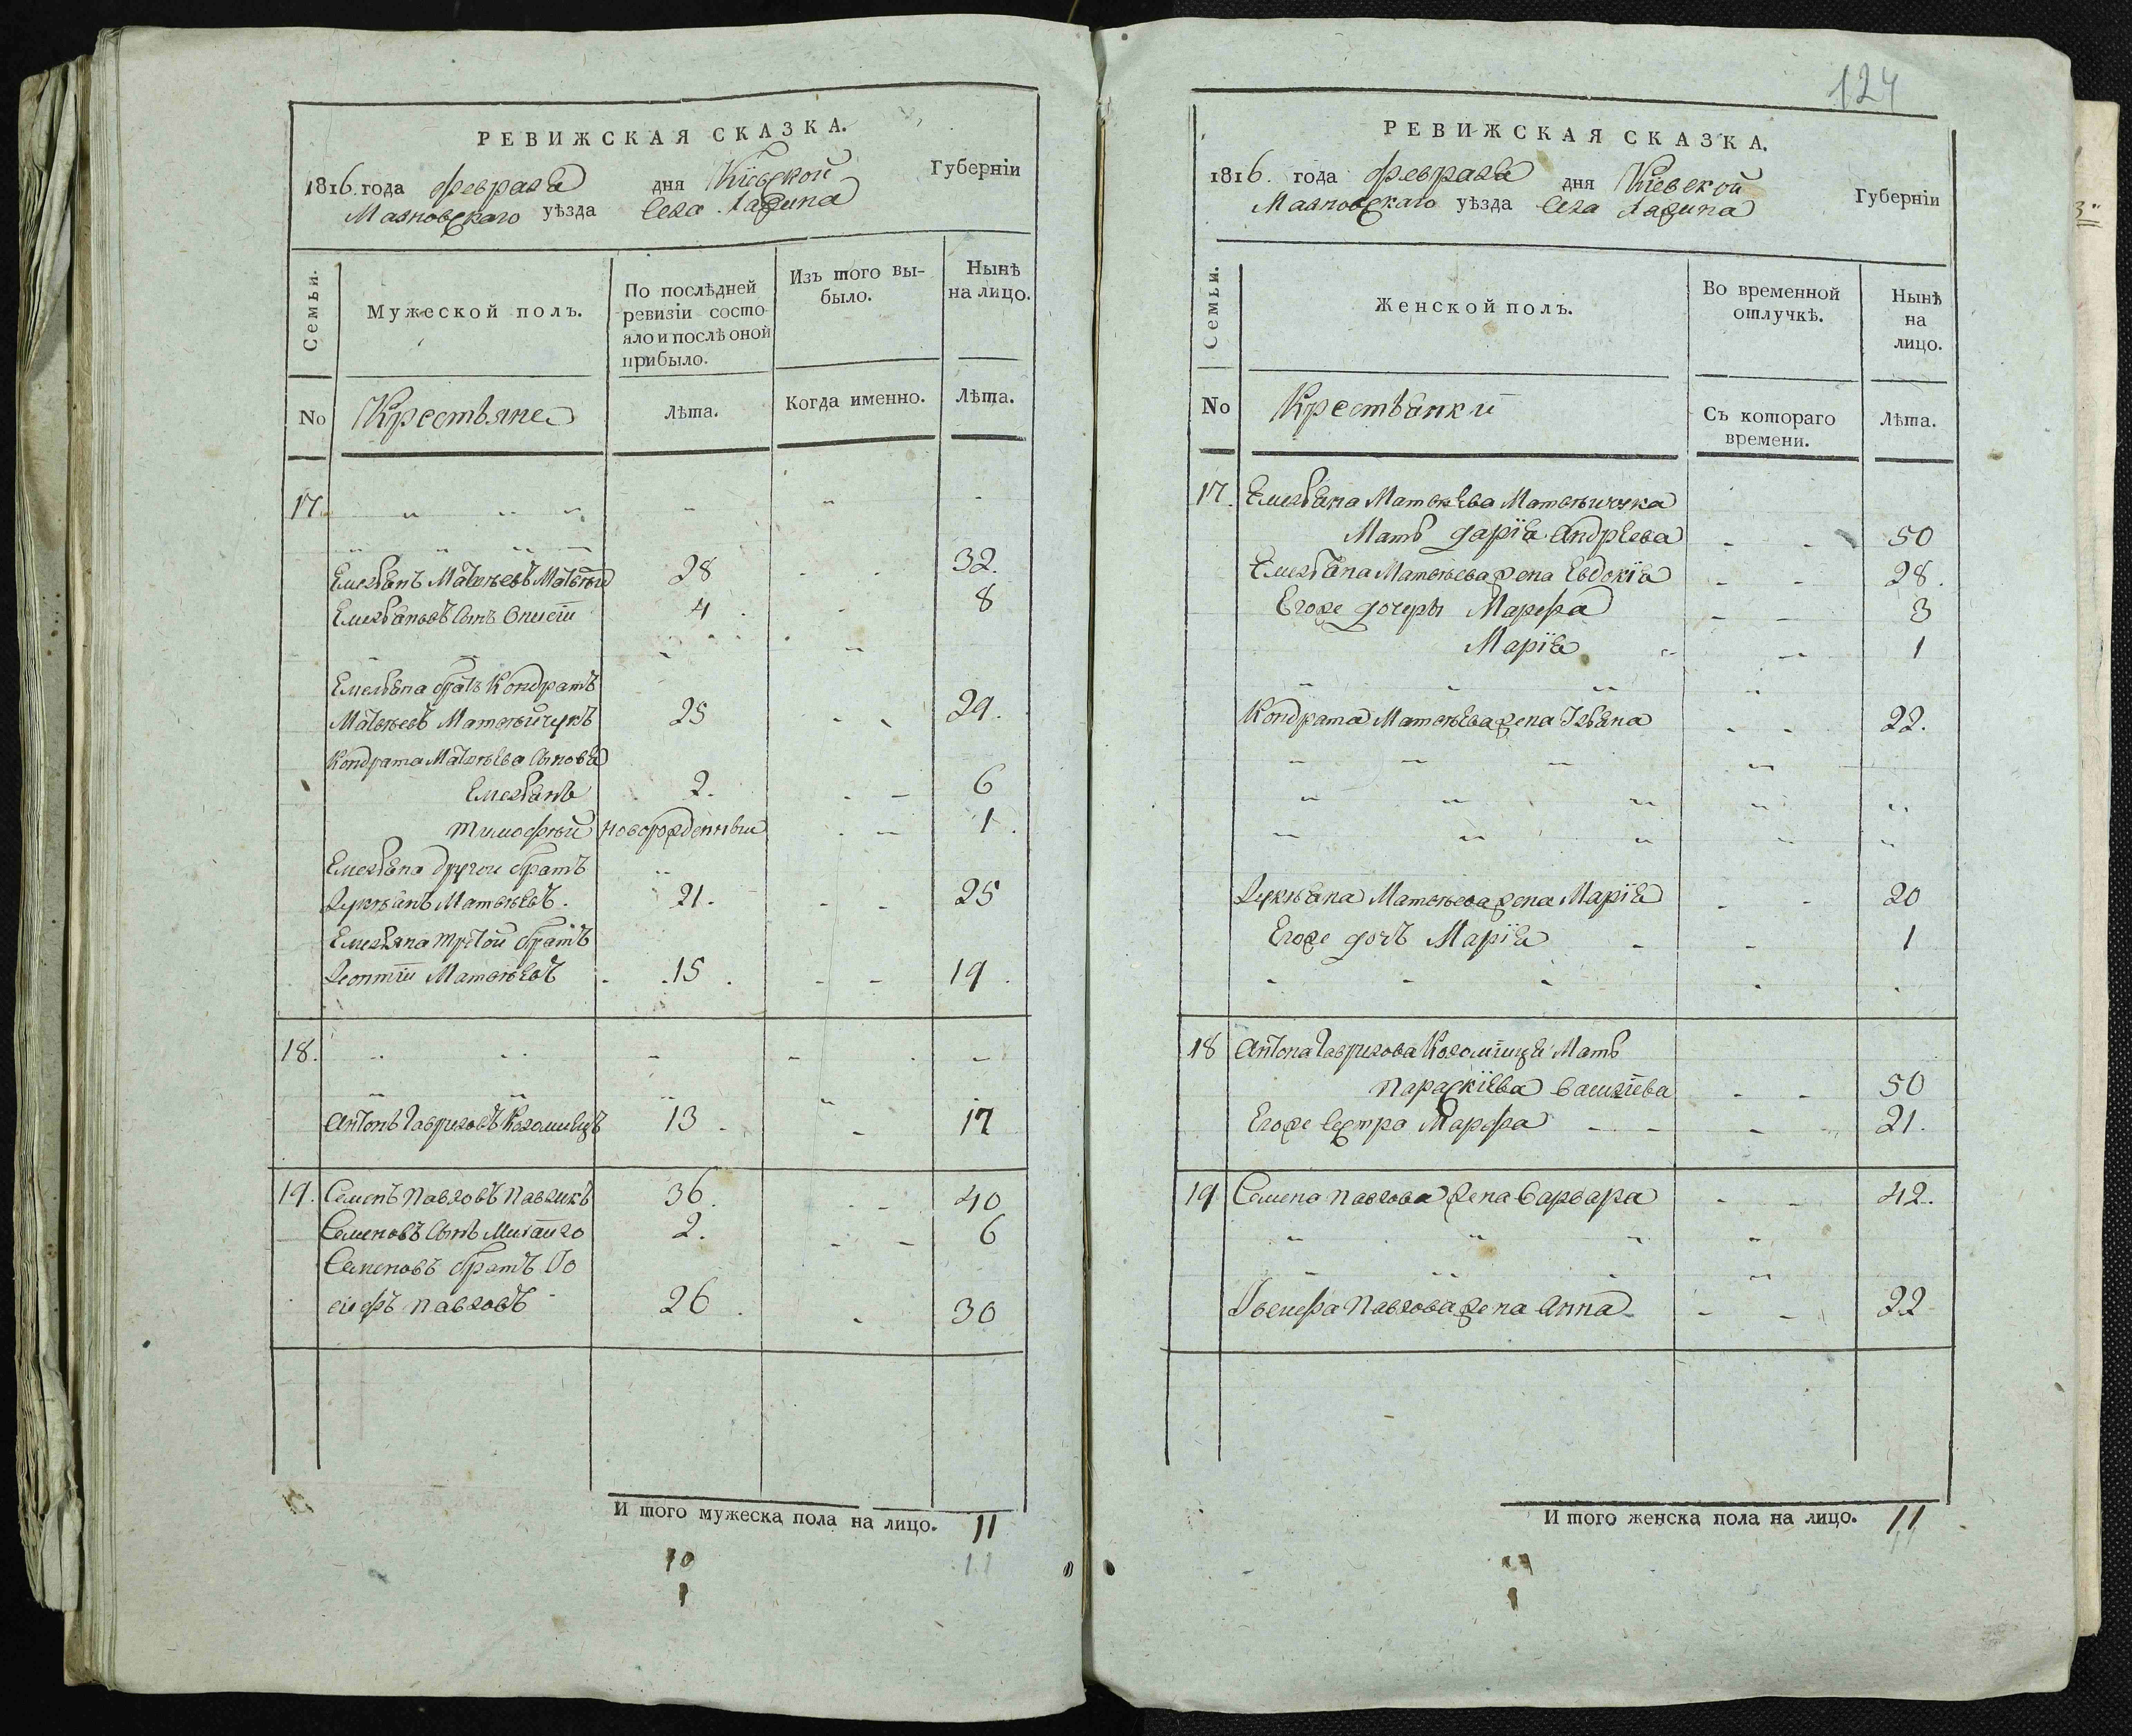 РЕВИЖСКАЯ СКАЗКА.
1816. года февраля дня Кіевской Губерніи
уѣзда Села
Семьи.
Мужеской полъ.
По послѣдней
ревизіи состо
яло и послѣ оной
прибыло.
Изъ того вы-
было.
Нынѣ
на лицо.
No
Крестьяне
Лѣта.
Когда именно.
Лѣта.
17.
Емельянъ Матвѣевъ 28 32.
Емельяновъ сынъ 4 8
Емельяна братъ Кондратъ
Матвѣевъ Матвѣйчукъ 25 29.
Кондрата Матвѣева сыновья
Емельянъ 2. 6
Тимофѣй новорожденный 1.
Емельяна другой братъ
Лукьянъ Матвѣевъ. 21. 25
Емельяна третой братъ
Леонтій Матвѣевъ 15 19.
18.
Антонъ Гавриловъ Коломіецъ 13 17
19. Семенъ Павловъ Павликъ 36. 40
Семеновъ сынъ Михайло 2. 6
Семеновъ братъ Іо
сифъ Павловъ 26. 30
И того мужеска пола на лицо. 11
10 11
1
124
РЕВИЖСКАЯ СКАЗКА.
1816. года февраля дня Кіевской Губерніи
уѣзда Села
Семьи.
Женской полъ.
Во временной
отлучкѣ.
Нынѣ
на
лицо.
No
Крестьянки
Съ котораго
времени.
Лѣта.
17. Емельяна Матвѣева Матвѣйчука
Мать Дарія Андреева 50
Емельяна Матвѣева жена Евдокія 28.
Егоже дочери Марфа 3
Марія 1
Кондрата Матвѣева жена Ульяна 22.
Лукьяна Матвѣева жена Марія 20
Егоже дочь Марія 1
18 Антона Гаврилова Коломійца Мать
Параскіева Василіева 50
Егоже сестра Марфа 21.
19 Семена Павлова жена Варвара 42.
Іосифа Павлова жена Анна 22
И того женска пола на лицо. 11
1